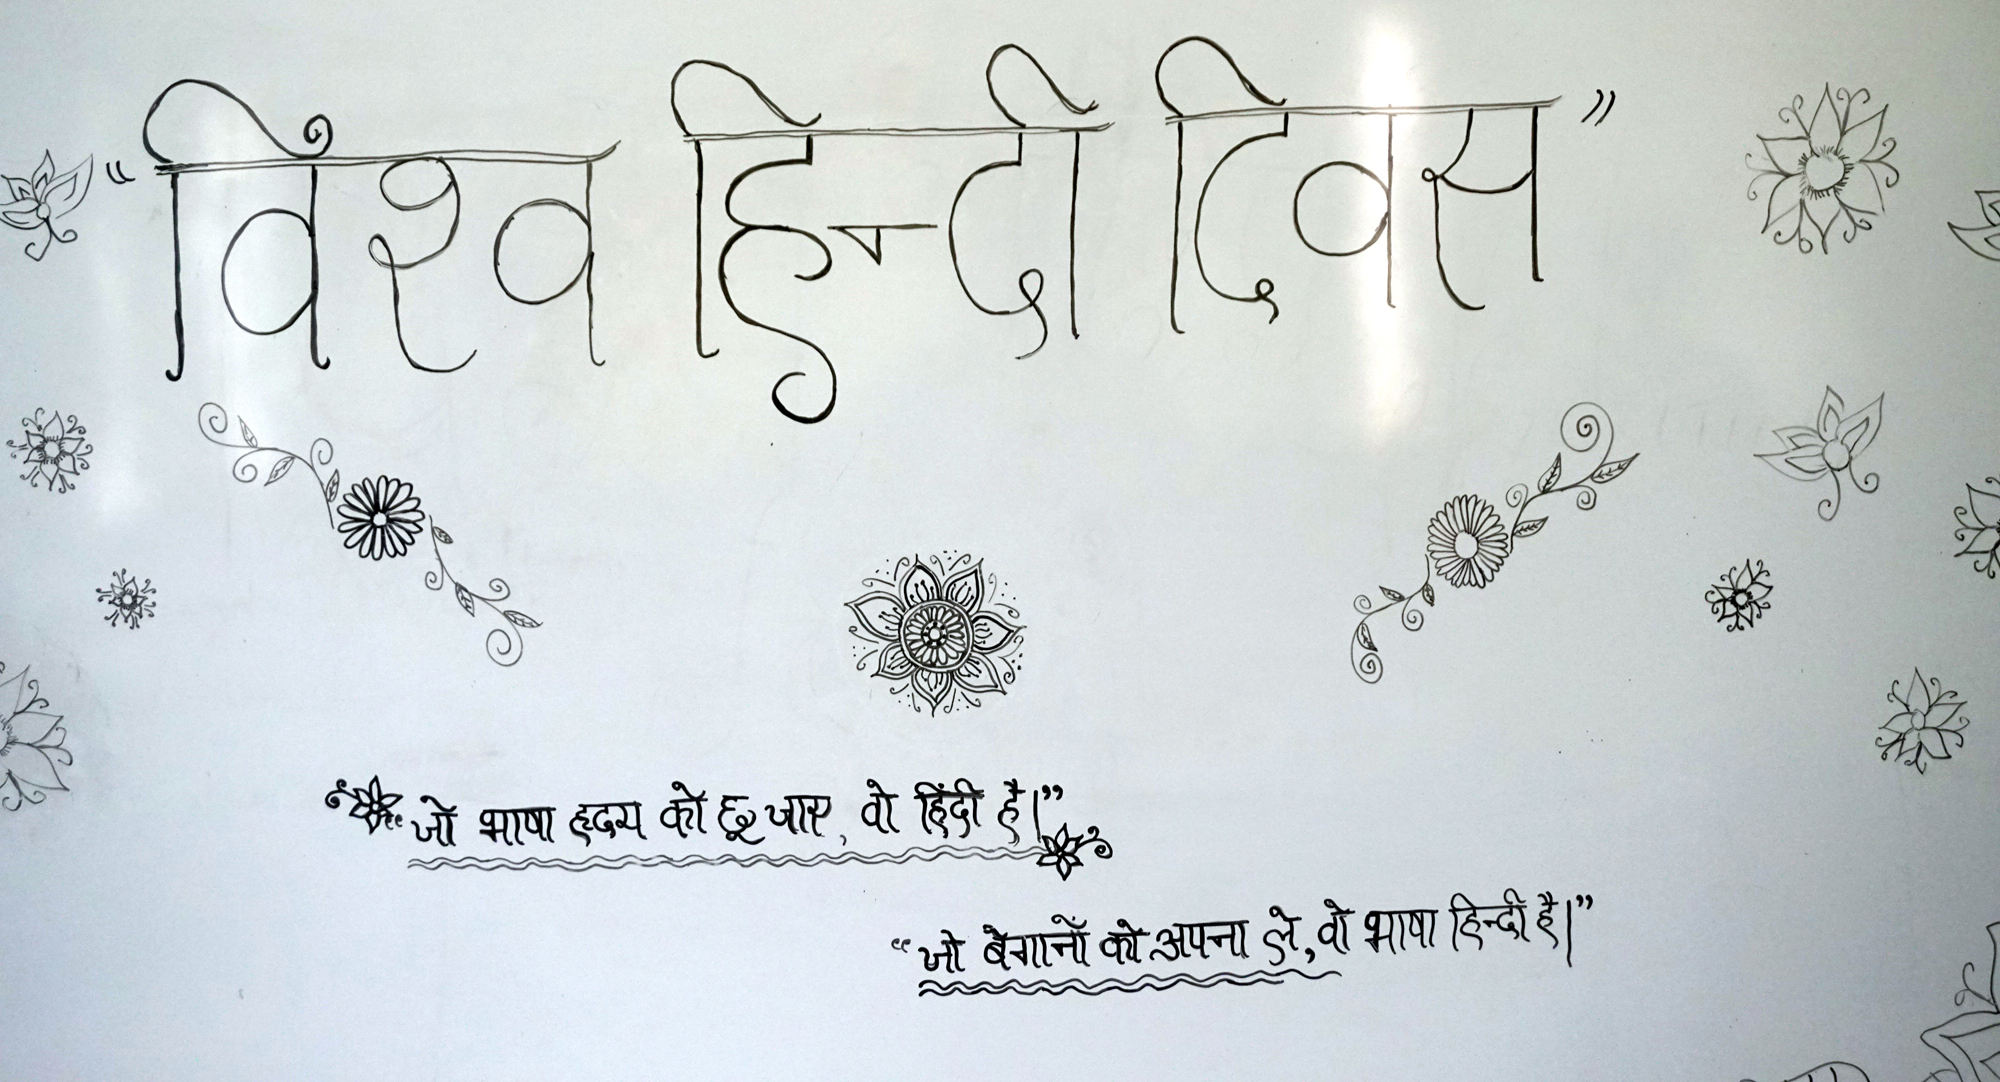 “विश्व हिन्दी दिवस”
“जो भाषा हृदय को छू जाए, वो हिंदी है।”
“जो बेगानों को अपना ले, वो भाषा हिन्दी है।”